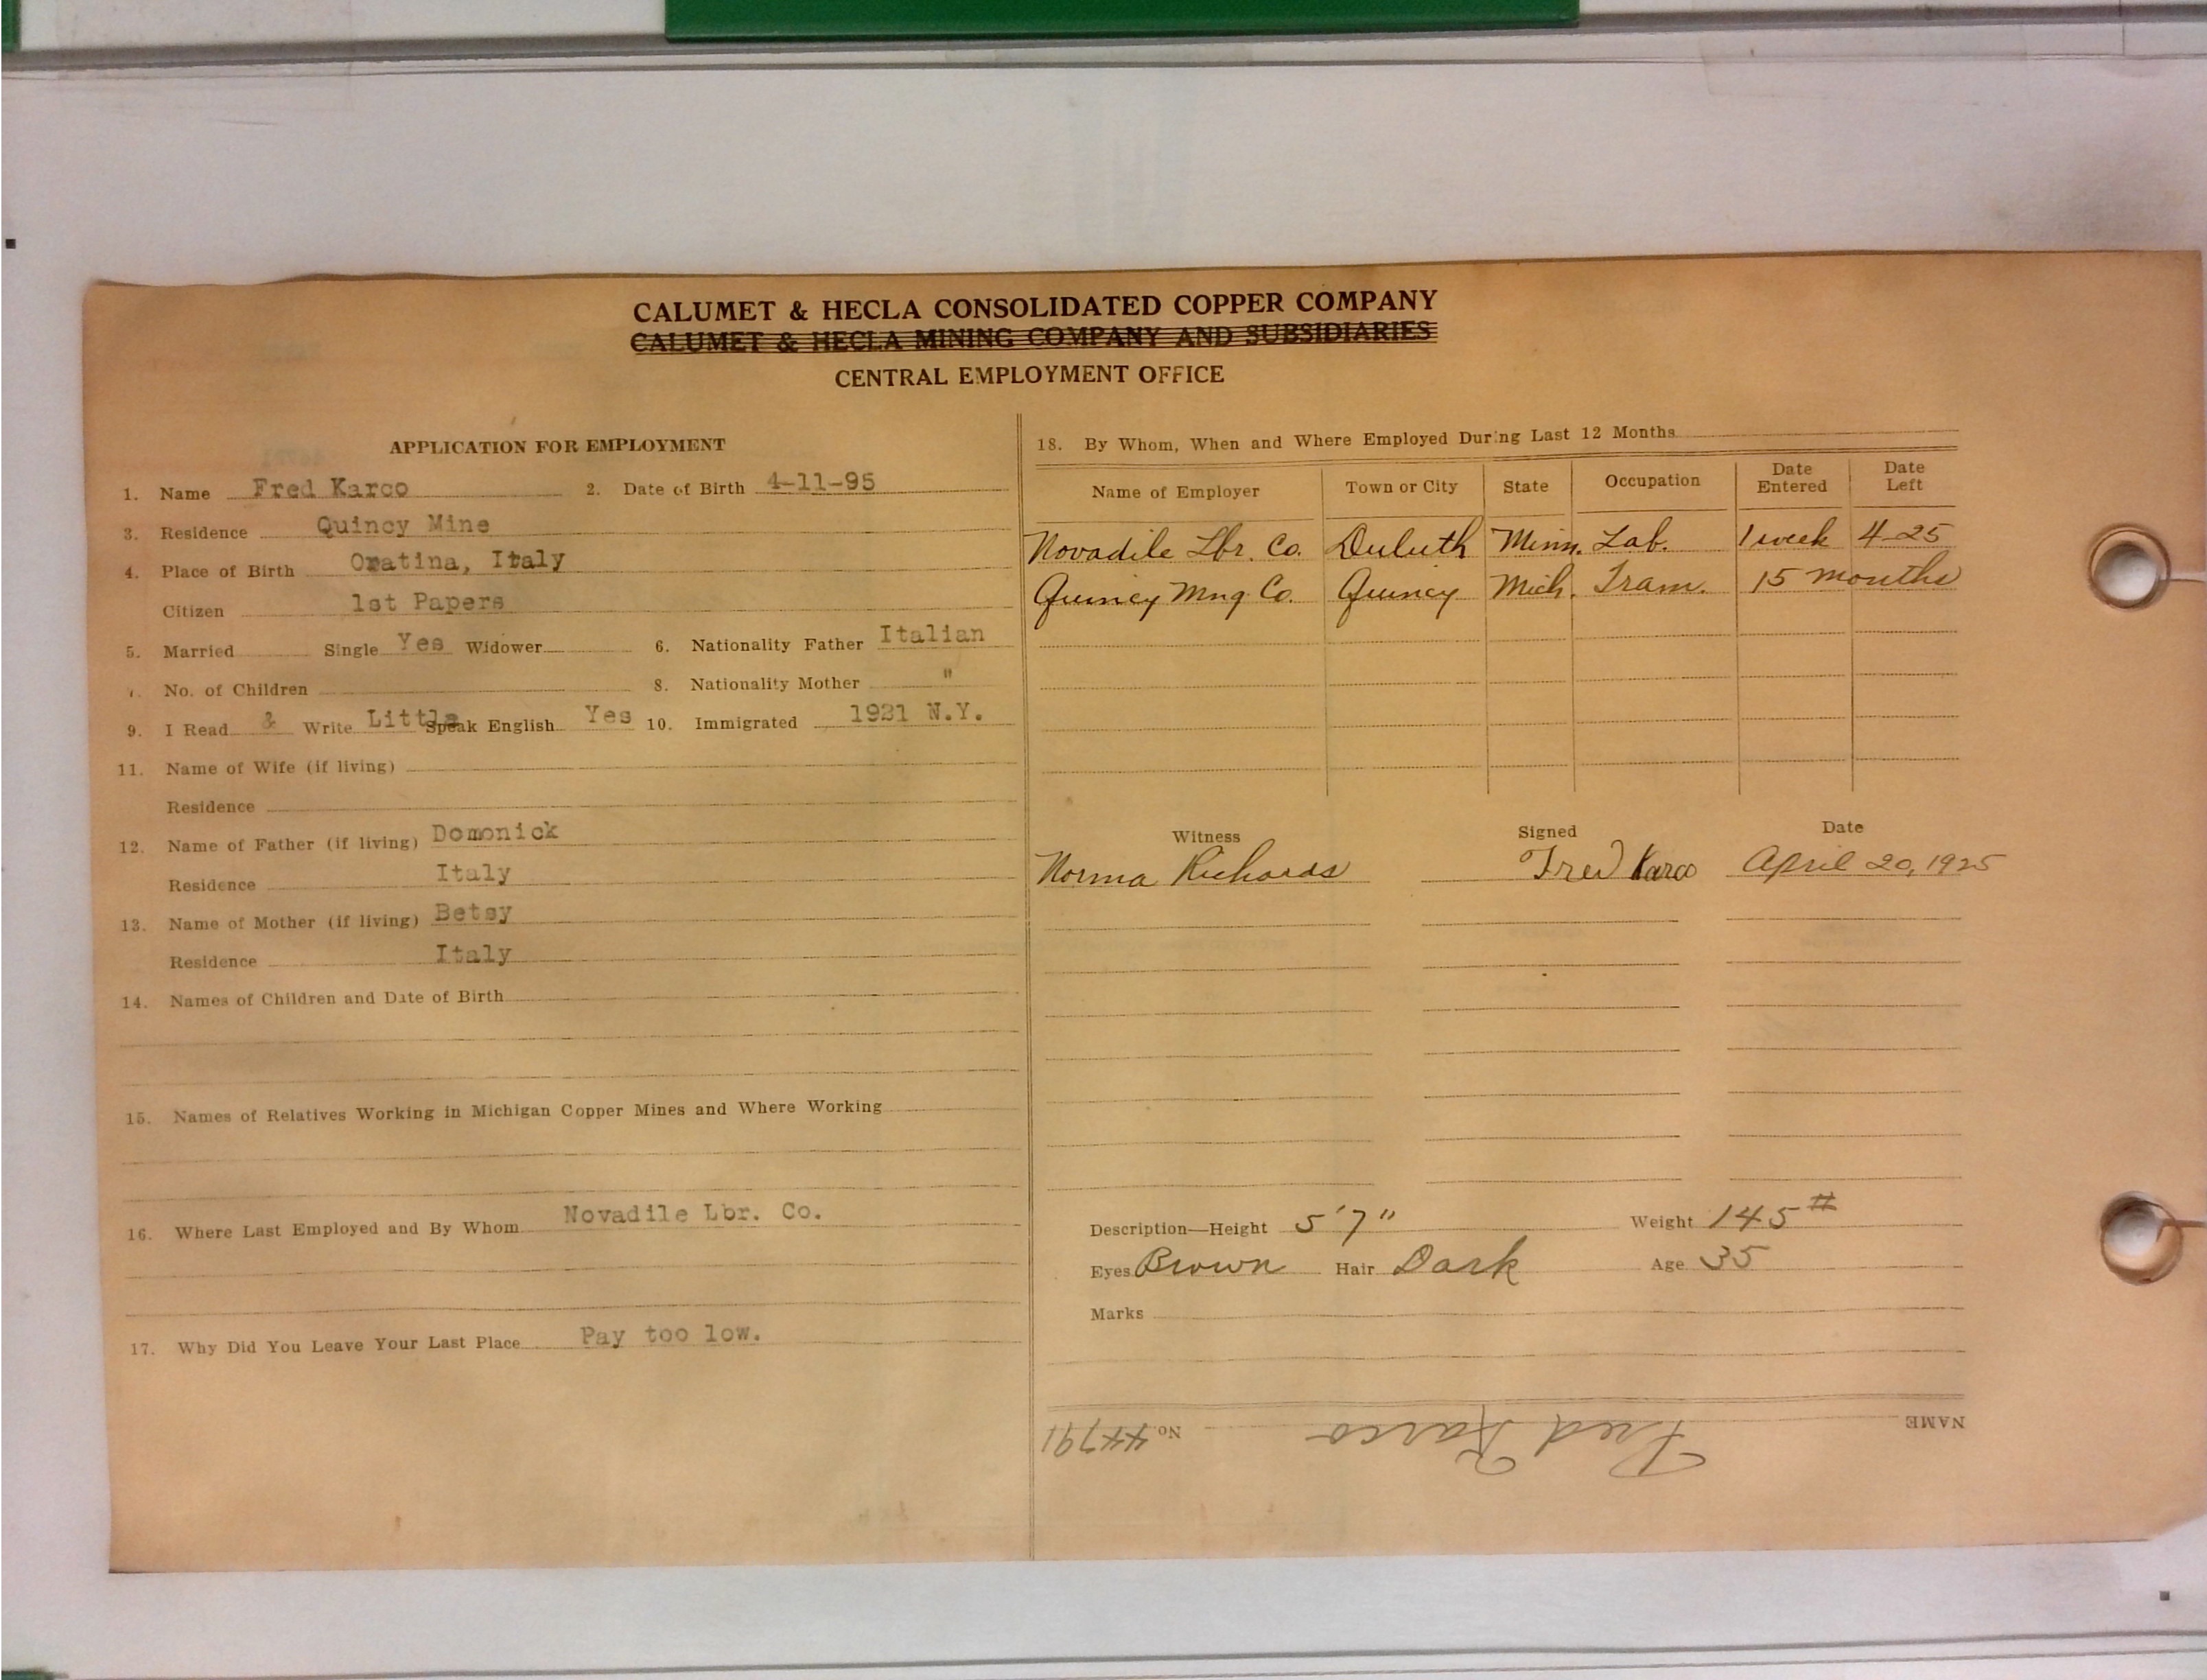 CALUMET & HECLA CONSOLIDATED COPPER COMPANY
CALUMET & HECLA MINING COMPANY AND SUBSIDIARIES
CENTRAL EMPLOYMENT OFFICE
APPLICATION FOR EMPLOYMENT
1. Name Fred Karco 2. Date of Birth 4-11-95
3. Residence Quincy Mine
4. Place of Birth Oratina, Italy
Citizen 1st Papers
5. Married Single Yes Widower 6. Nationality Father Italian
7. No. of Children 8. Nationality Mother "
9. I Read & Write Little Speak English Yes 10. Immigrated 1921 N.Y.
11. Name of Wife (if living)
Residence
12. Name of Father (if living) Domonick
Residence Italy
13. Name of Mother (if living) Betsy
Residence Italy
14. Names of Children and Date of Birth
15. Names of Relatives Working in Michigan Copper Mines and Where Working
16. Where Last Employed and By Whom Novadile Lbr. Co.
17. Why Did You Leave Your Last Place Pay too low.
18. By Whom, When and Where Employed During Last 12 Months
Name of Employer Town or City State Occupation Date Entered Date Left
Novadile Lbr. Co. Duluth Minn. Lab. 1 week 4-25
Quincy Mng Co. Quincy Mich. Tram. 15 months
Witness Signed Date
Norma Richards Fred Karco April 20, 1925
Description—Height 5'7" Weight 145#
Eyes Brown Hair Dark Age 35
Marks
NAME Fred Karco No. 44791